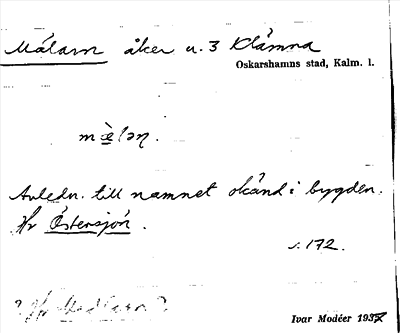 Målarn åker u. 3 Klämna
Oskarshamns stad, Kalm. l.
mæ̀lən.
Avledn. till namnet okänd i bygden.
Hr Östersjön.
s. 172.
Ivar Modéer 1937